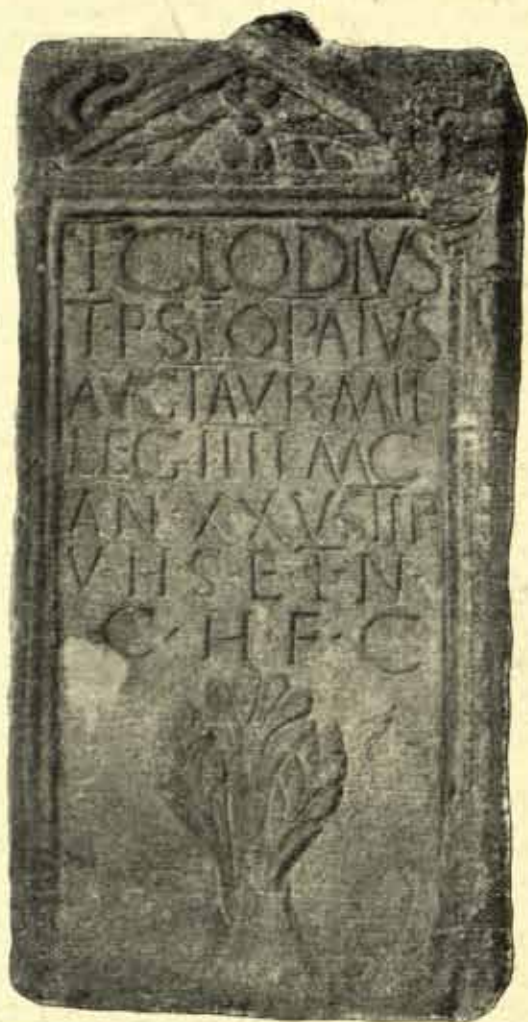 T CLODIVS
T·F·STE OPTATVS
AVG TAVR·MIL
LEG·IIII MAC
AN XXV STIP
V·H·S·E·T·N·
C·H·F·C